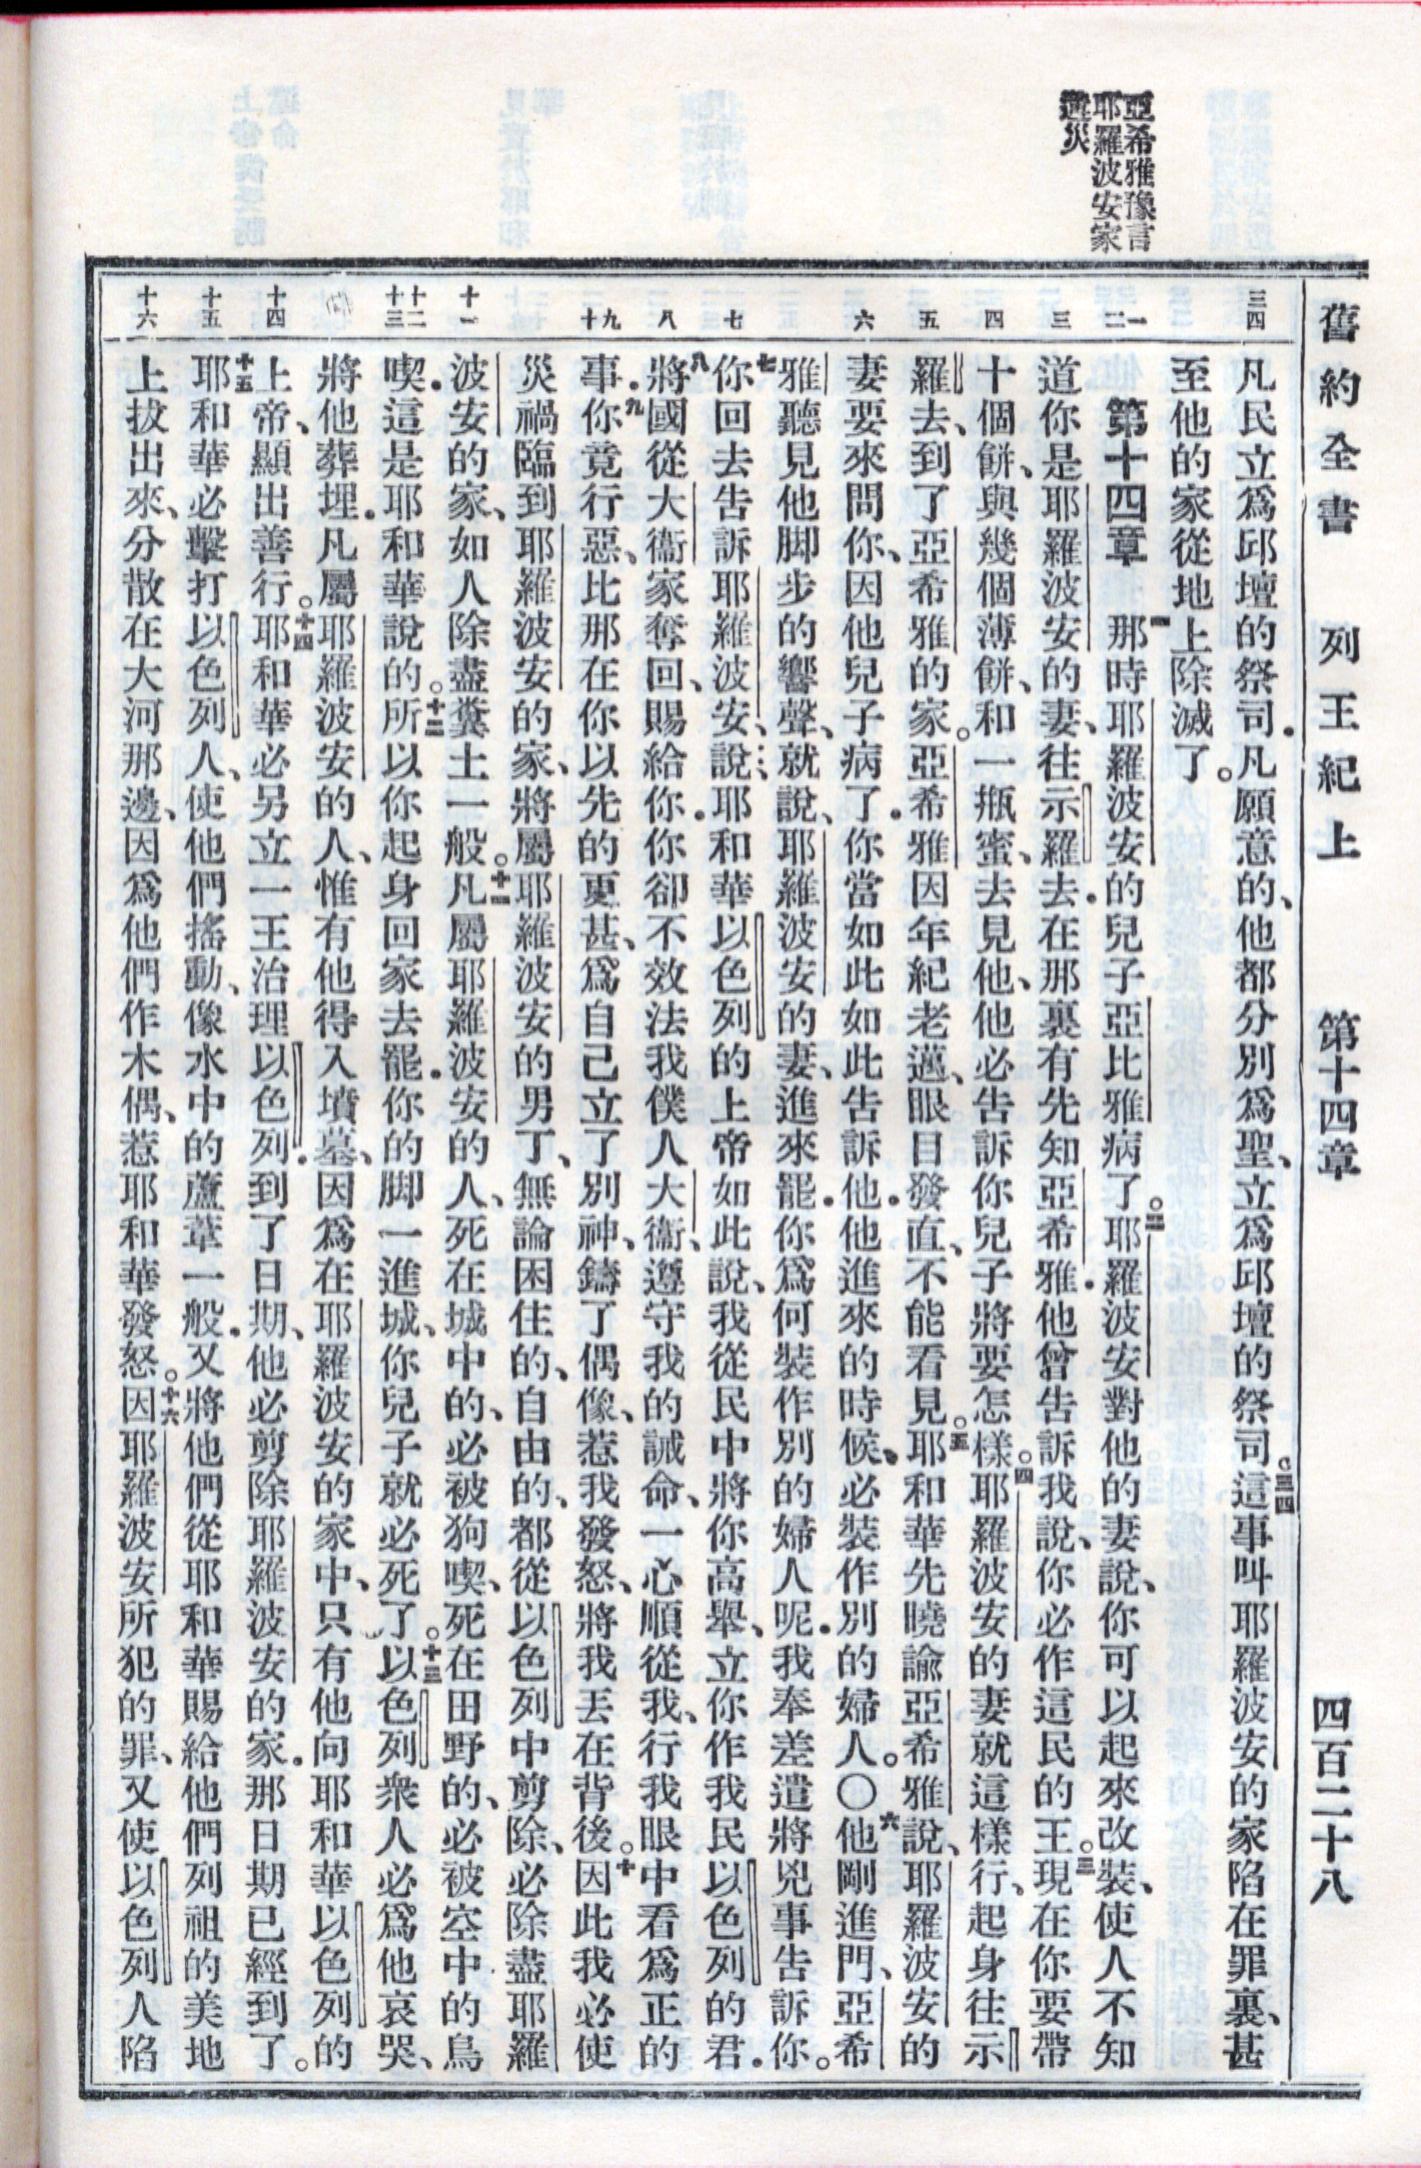 舊約全書　列王紀上　第十四章　四百二十八
亞希雅豫言
耶羅波安家
遘災
三四
一
二
三
四
五
六
七
八
九
十
十一
十二
十三
十四
十五
十六
凡民立爲邱壇的祭司．凡願意的、他都分別爲聖、立爲邱壇的祭司。三四這事叫耶羅波安的家陷在罪裏、甚
至他的家從地上除滅了。
第十四章　一那時耶羅波安的兒子亞比雅病了。二耶羅波安對他的妻說、你可以起來改裝、使人不知
道你是耶羅波安的妻、往示羅去．在那裏有先知亞希雅．他曾告訴我說、你必作這民的王。三現在你要帶
十個餅、與幾個薄餅、和一瓶蜜、去見他、他必告訴你兒子將要怎樣。四耶羅波安的妻就這樣行、起身往示
羅去、到了亞希雅的家。亞希雅因年紀老邁、眼目發直、不能看見。五耶和華先曉諭亞希雅說、耶羅波安的
妻要來問你、因他兒子病了．你當如此如此告訴他．他進來的時候、必裝作別的婦人。〇六他剛進門、亞希
雅聽見他脚步的響聲、就說、耶羅波安的妻、進來罷．你爲何裝作別的婦人呢．我奉差遣將兇事告訴你。
七你回去告訴耶羅波安、說、耶和華以色列的上帝如此說、我從民中將你高舉、立你作我民以色列的君．
八將國從大衞家奪回、賜給你．你卻不效法我僕人大衞、遵守我的誡命、一心順從我、行我眼中看爲正的
事．九你竟行惡、比那在你以先的更甚、爲自己立了別神、鑄了偶像、惹我發怒、將我丟在背後。十因此我必使
災禍臨到耶羅波安的家、將屬耶羅波安的男丁、無論困住的、自由的、都從以色列中剪除、必除盡耶羅
波安的家、如人除盡糞土一般。十一凡屬耶羅波安的人、死在城中的、必被狗喫、死在田野的、必被空中的鳥
喫．這是耶和華說的。十二所以你起身回家去罷．你的脚一進城、你兒子就必死了。十三以色列衆人必爲他哀哭、
將他葬埋．凡屬耶羅波安的人、惟有他得入墳墓、因爲在耶羅波安的家中、只有他向耶和華以色列的
上帝、顯出善行。十四耶和華必另立一王治理以色列．到了日期、他必剪除耶羅波安的家．那日期已經到了。
十五耶和華必擊打以色列人、使他們搖動、像水中的蘆葦一般．又將他們從耶和華賜給他們列祖的美地
上拔出來、分散在大河那邊、因爲他們作木偶、惹耶和華發怒。十六因耶羅波安所犯的罪、又使以色列人陷